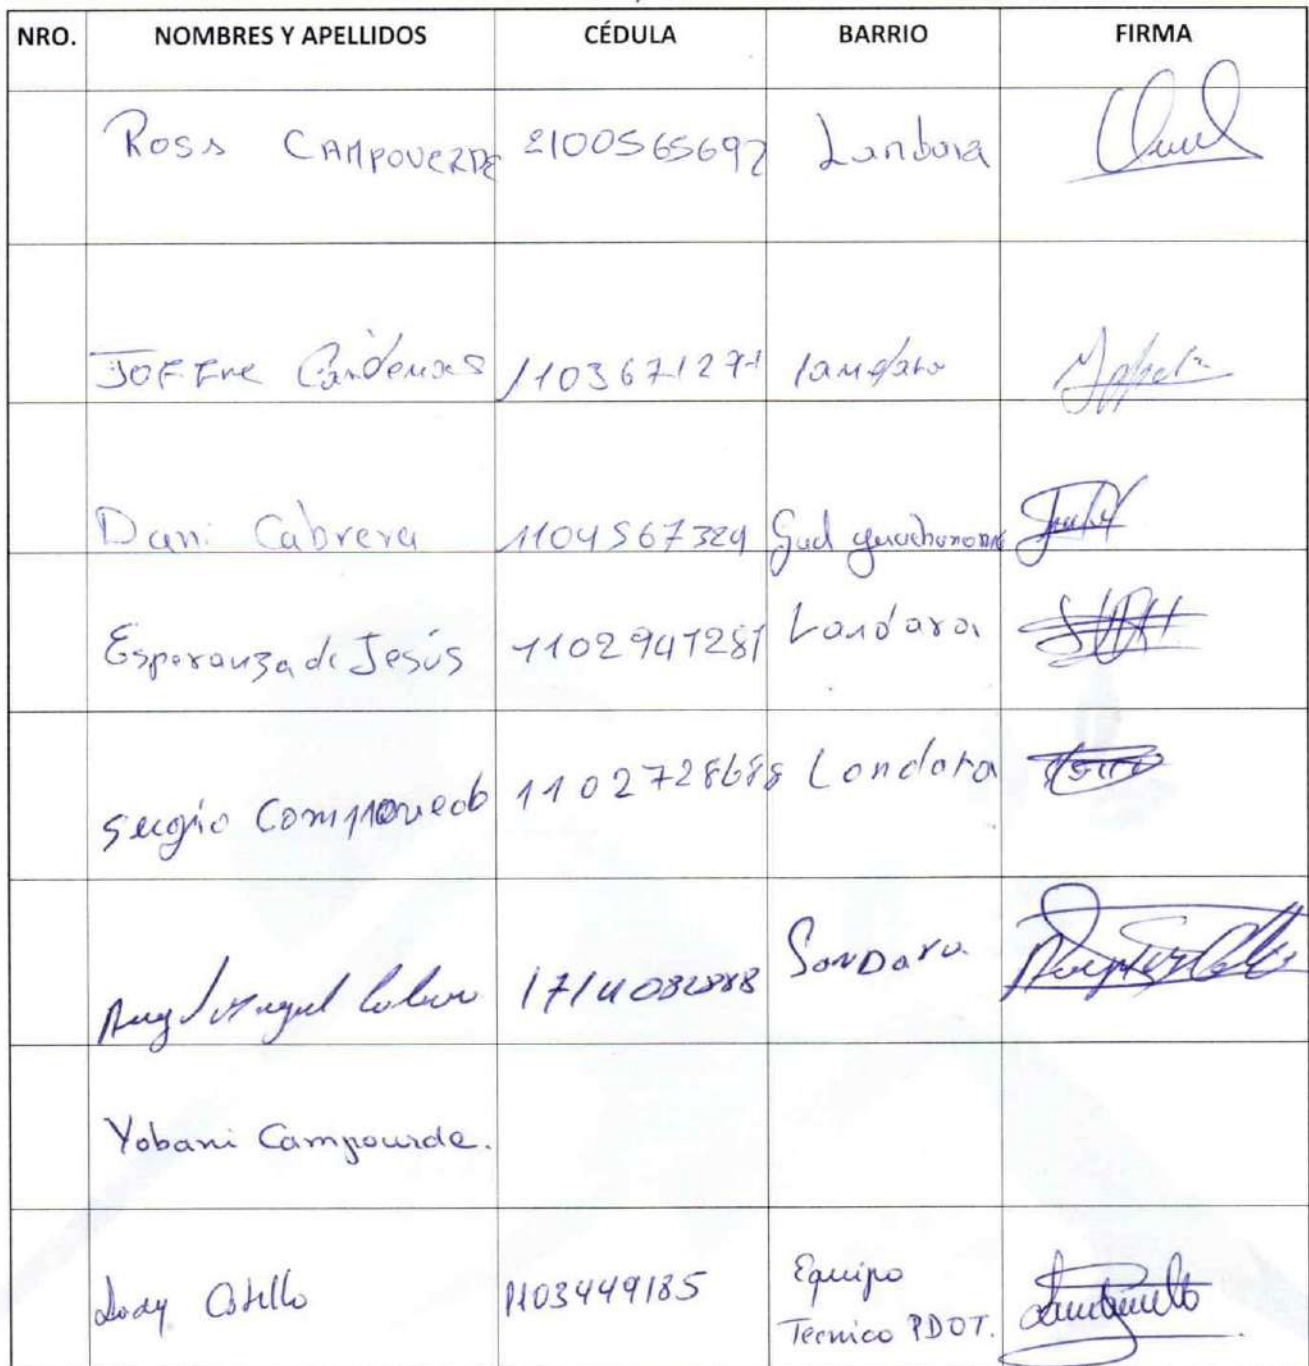 NRO. NOMBRES Y APELLIDOS CÉDULA BARRIO FIRMA
Ross CAMPOVERDE 2100565692 Landara
JOFFre Cárdenas 1103671271 landara
Dani Cabrera 1104567329 Gad
Esperanza de Jesús 1102947281 Landara
Sergio 1102728688 Londara
Miguel SonDara
Yobani Campourde.
Lody Cstillo 1103449185 Equipo
Tecnico PDOT.